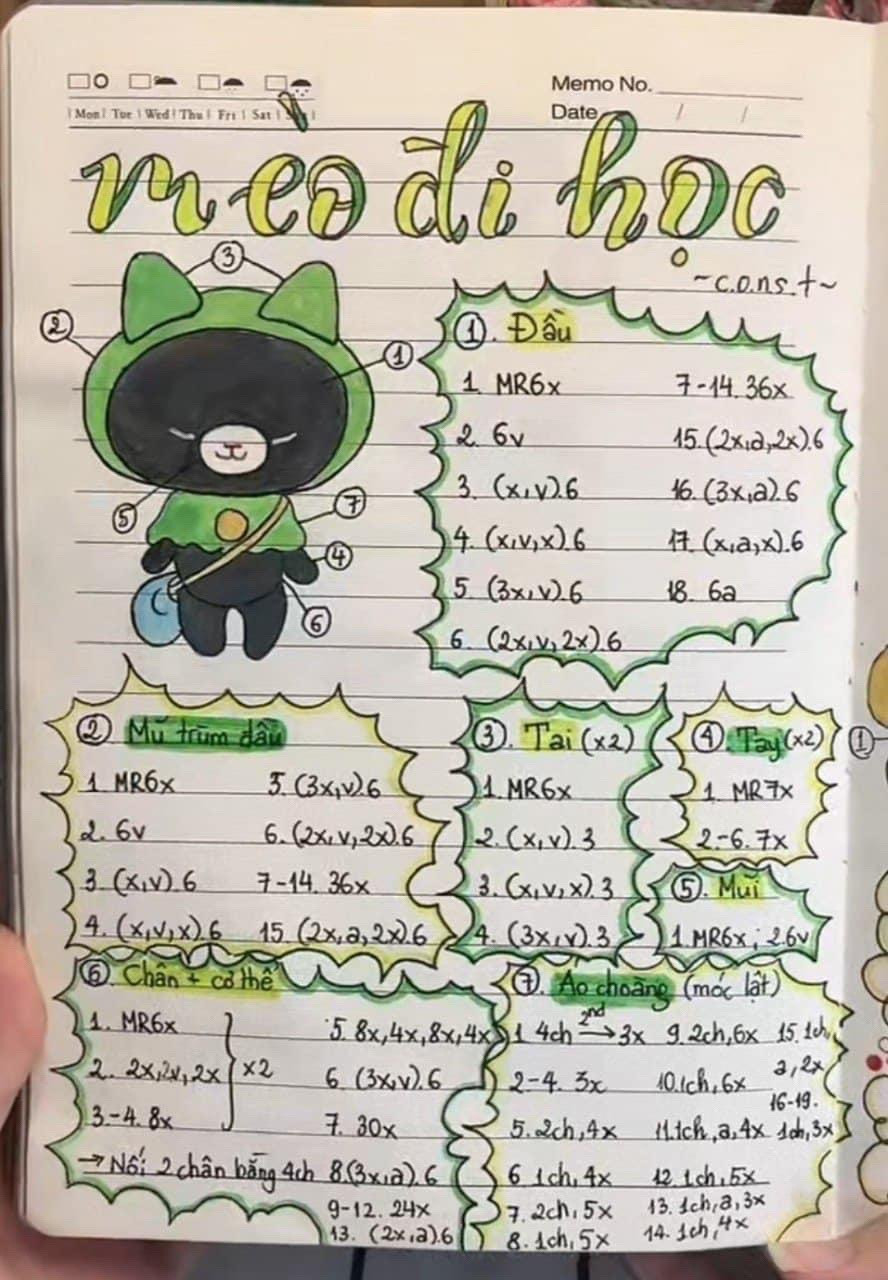 Memo No.
Mon Tue Wed Thu Fri Sat
Date / /
mèo đi học
~c.o.n.s.t~
③
②
①
⑤
⑦
④
⑥
①. Đầu
1. MR6x
2. 6v
3. (x,v).6
4. (x,v,x).6
5. (3x,v).6
6. (2x,v,2x).6
7-14. 36x
15. (2x,a,2x).6
16. (3x,a).6
17. (x,a,x).6
18. 6a
② Mũ trùm đầu
1. MR6x
2. 6v
3. (x,v).6
4. (x,v,x).6
5. (3x,v).6
6. (2x,v,2x).6
7-14. 36x
15. (2x,a,2x).6
③. Tai (x2)
1. MR6x
2. (x,v).3
3. (x,v,x).3
4. (3x,v).3
④. Tay (x2)
1. MR7x
2.-6. 7x
⑤. Mũi
1. MR6x; 2.6v
⑥. Chân + cơ thể
1. MR6x
2. 2x,2v,2x
3.-4. 8x
x2
→ Nối 2 chân bằng 4ch
5. 8x,4x,8x,4x
6. (3x,v).6
7. 30x
8. (3x,a).6
9-12. 24x
13. (2x,a).6
⑦. Áo choàng (móc lật)
1. 4ch 2nd → 3x
2-4. 3x
5. 2ch,4x
6. 1ch,4x
7. 2ch,5x
8. 1ch,5x
9. 2ch,6x
10. 1ch,6x
11. 1ch,a,4x
12. 1ch,5x
13. 1ch,a,3x
14. 1ch,4x
15. 1ch,
a,2x
16-19.
1ch,3x
①